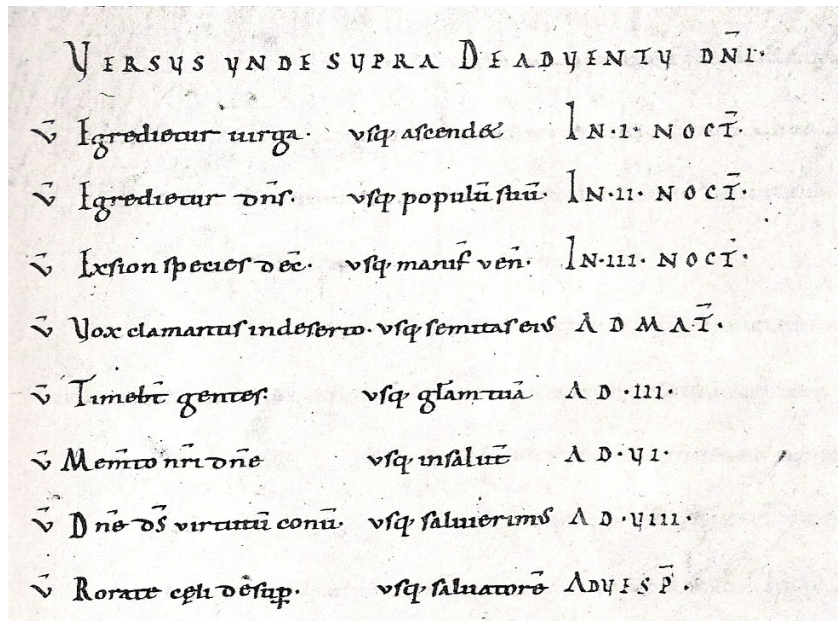 VERSUS UNDE SUPRA DE ADUENTU DN̄I·
v̄ Igredietur uirga· usq; ascend& IN·I· NOCT̄·
v̄ Igredietur dn̄s· usq; populū suū· IN·II· NOCT̄·
v̄ Ex sion species dec̄· usq; manif̄ ven̄· IN·III· NOCT̄·
v̄ Vox clamantis in deserto· usq; semitas eius AD MAT̄·
v̄ Timeb̄t gentes· usq; gl̄am tuā AD·III·
v̄ Mem̄to nr̄i dn̄e usq; in salut̄ AD·VI·
v̄ Dn̄e d̄s virtutū conū· usq; saluierimus AD·VIIII·
v̄ Rorate cęli desup̱· usq; saluatorē AD UESP̄·